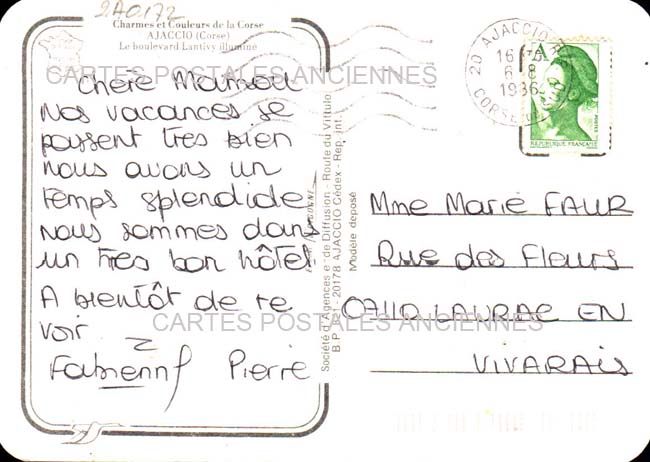 2A0172
Charmes et Couleurs de la Corse
AJACCIO (Corse)
Le boulevard Lantivy illuminé
CARTES POSTALES ANCIENNES
Chère Mamou
Nos vacances se
passent tres bien
nous avons un
temps splendide
nous sommes dans
un tres bon hôtel
A bientôt de te
voir
CARTES POSTALES ANCIENNES
Fabienne Pierre
Société d'Agences et de Diffusion - Route du Vittulo
B.P. 21 - 20178 AJACCIO Cédex - Rep. Int.
Modèle déposé
20 AJACCIO R.P.
16 H
6-8
1986
CORSE DU SUD
A
REPUBLIQUE FRANÇAISE
POSTES
Mme Marie FAUR
Rue des Fleurs
07110 LAURAC EN
VIVARAIS